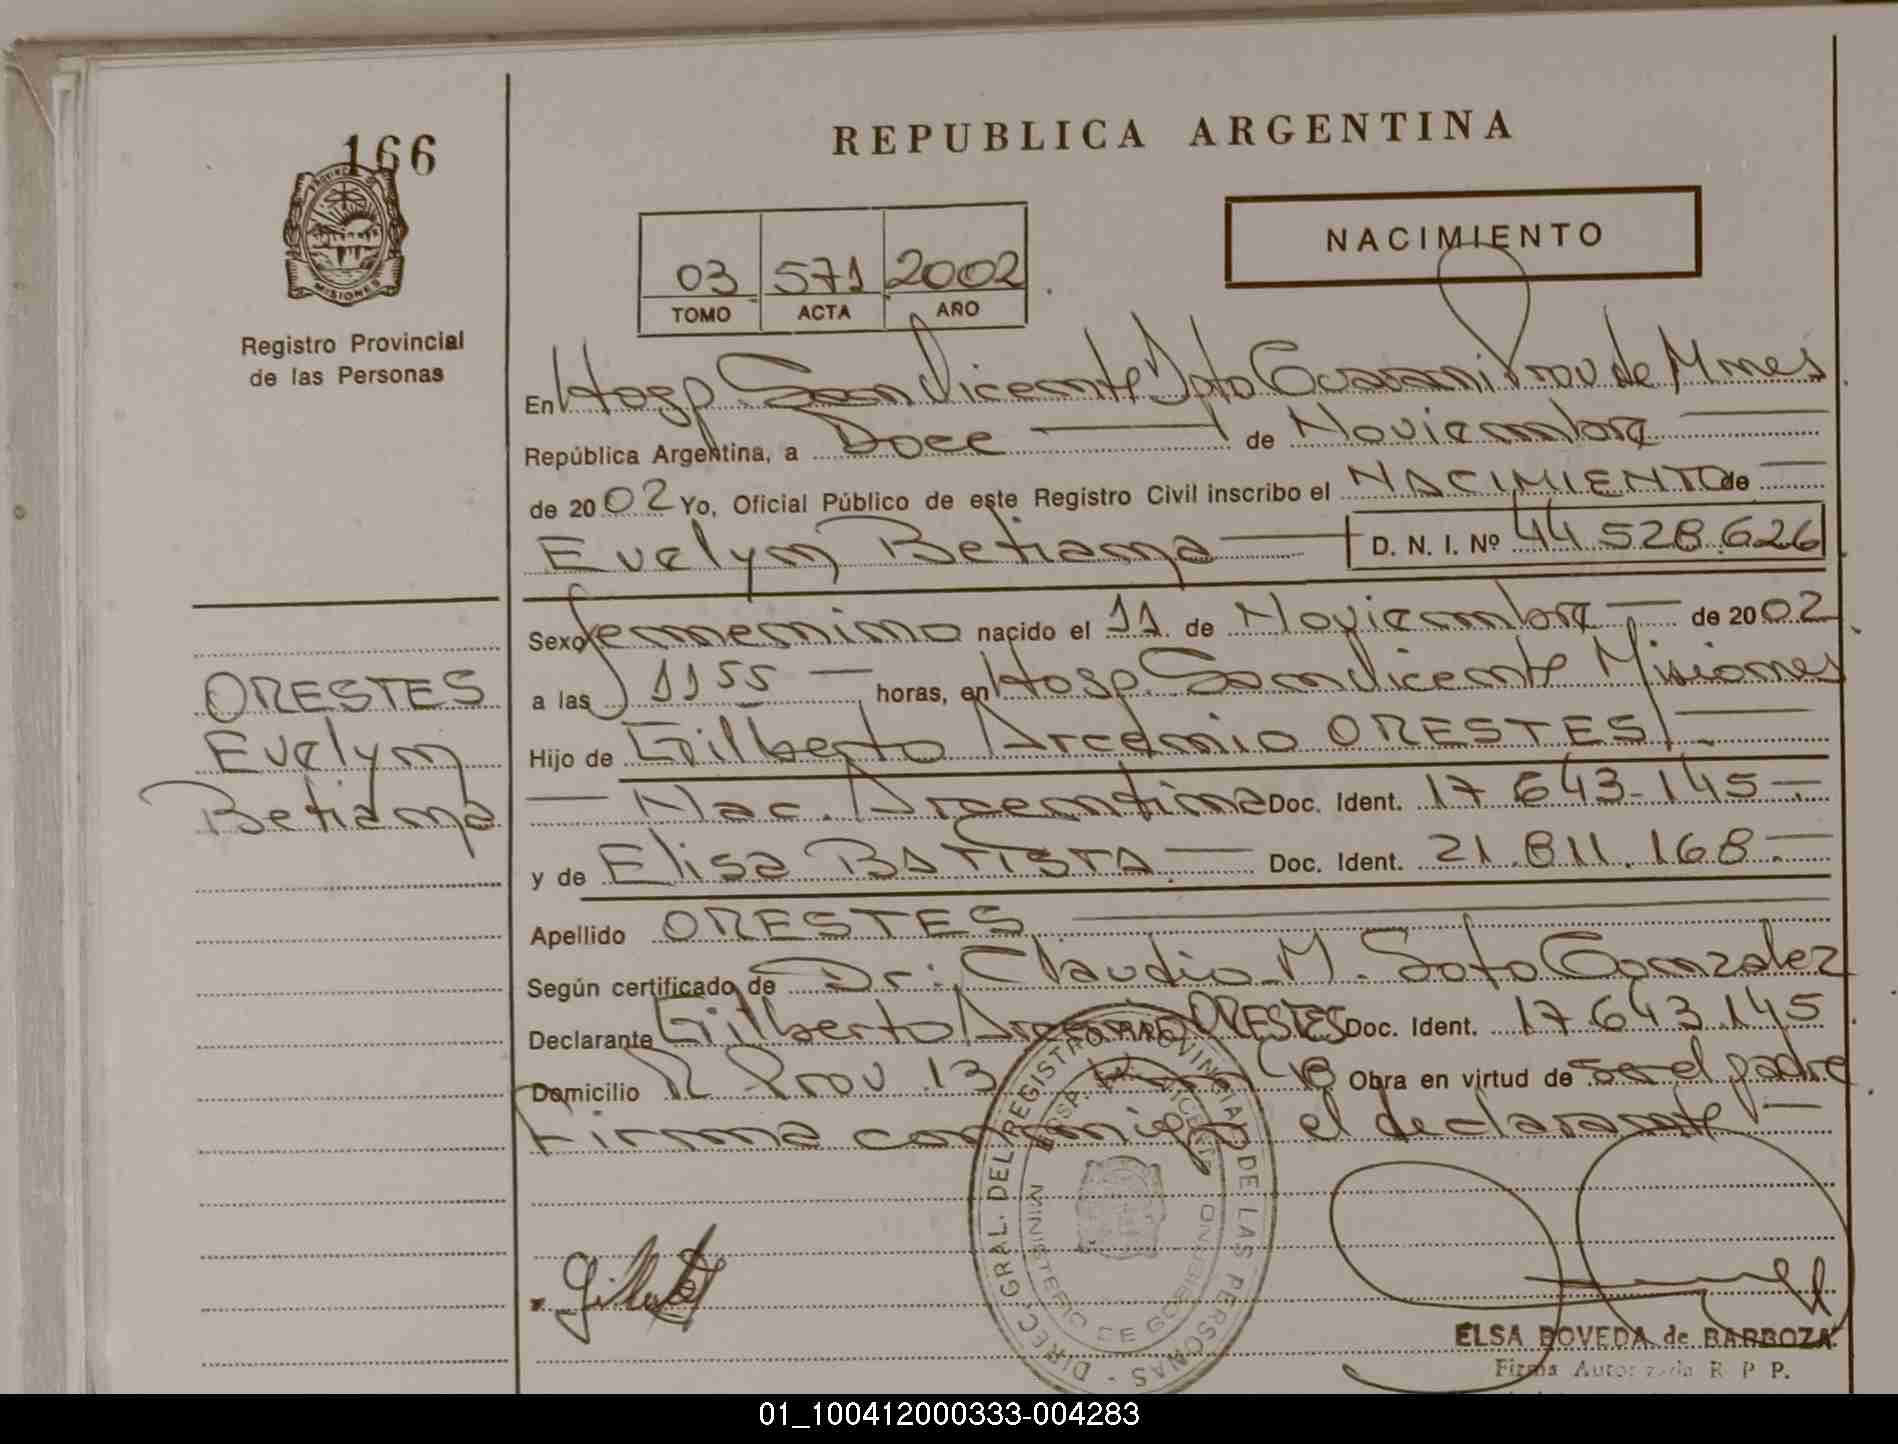 166
PROVINCIA DE
MISIONES
Registro Provincial
de las Personas
ORESTES
Evelyn
Betiana
REPUBLICA ARGENTINA
NACIMIENTO
03 571 2002
TOMO ACTA AÑO
En Hosp San Vicente Dpto Guarani Prov de Mnes
República Argentina, a Doce de Noviembre
de 2002 Yo, Oficial Público de este Registro Civil inscribo el NACIMIENTO de
Evelyn Betiana D. N. I. Nº 44 528.626
Sexo femenino nacido el 11 de Noviembre de 2002
a las 1155 horas, en Hosp San Vicente Misiones
Hijo de Gilberto Arcenio ORESTES
Nac. Argentina Doc. Ident. 17 643-145
y de Elisa BATISTA Doc. Ident. 21.811.168
Apellido ORESTES
Según certificado de Dr: Claudio M. Soto Gonzalez
Declarante Gilberto Arcenio ORESTES Doc. Ident. 17 643.145
Domicilio R Prov 13 Obra en virtud de ser el padre
Firma conmigo el declarante
DIREC. GRAL. DEL REGISTRO PROVINCIAL DE LAS PERSONAS
MINISTERIO DE GOBIERNO
ELSA BOVEDA de BARBOZA
Firma Autorizada R P P.
01_100412000333-004283